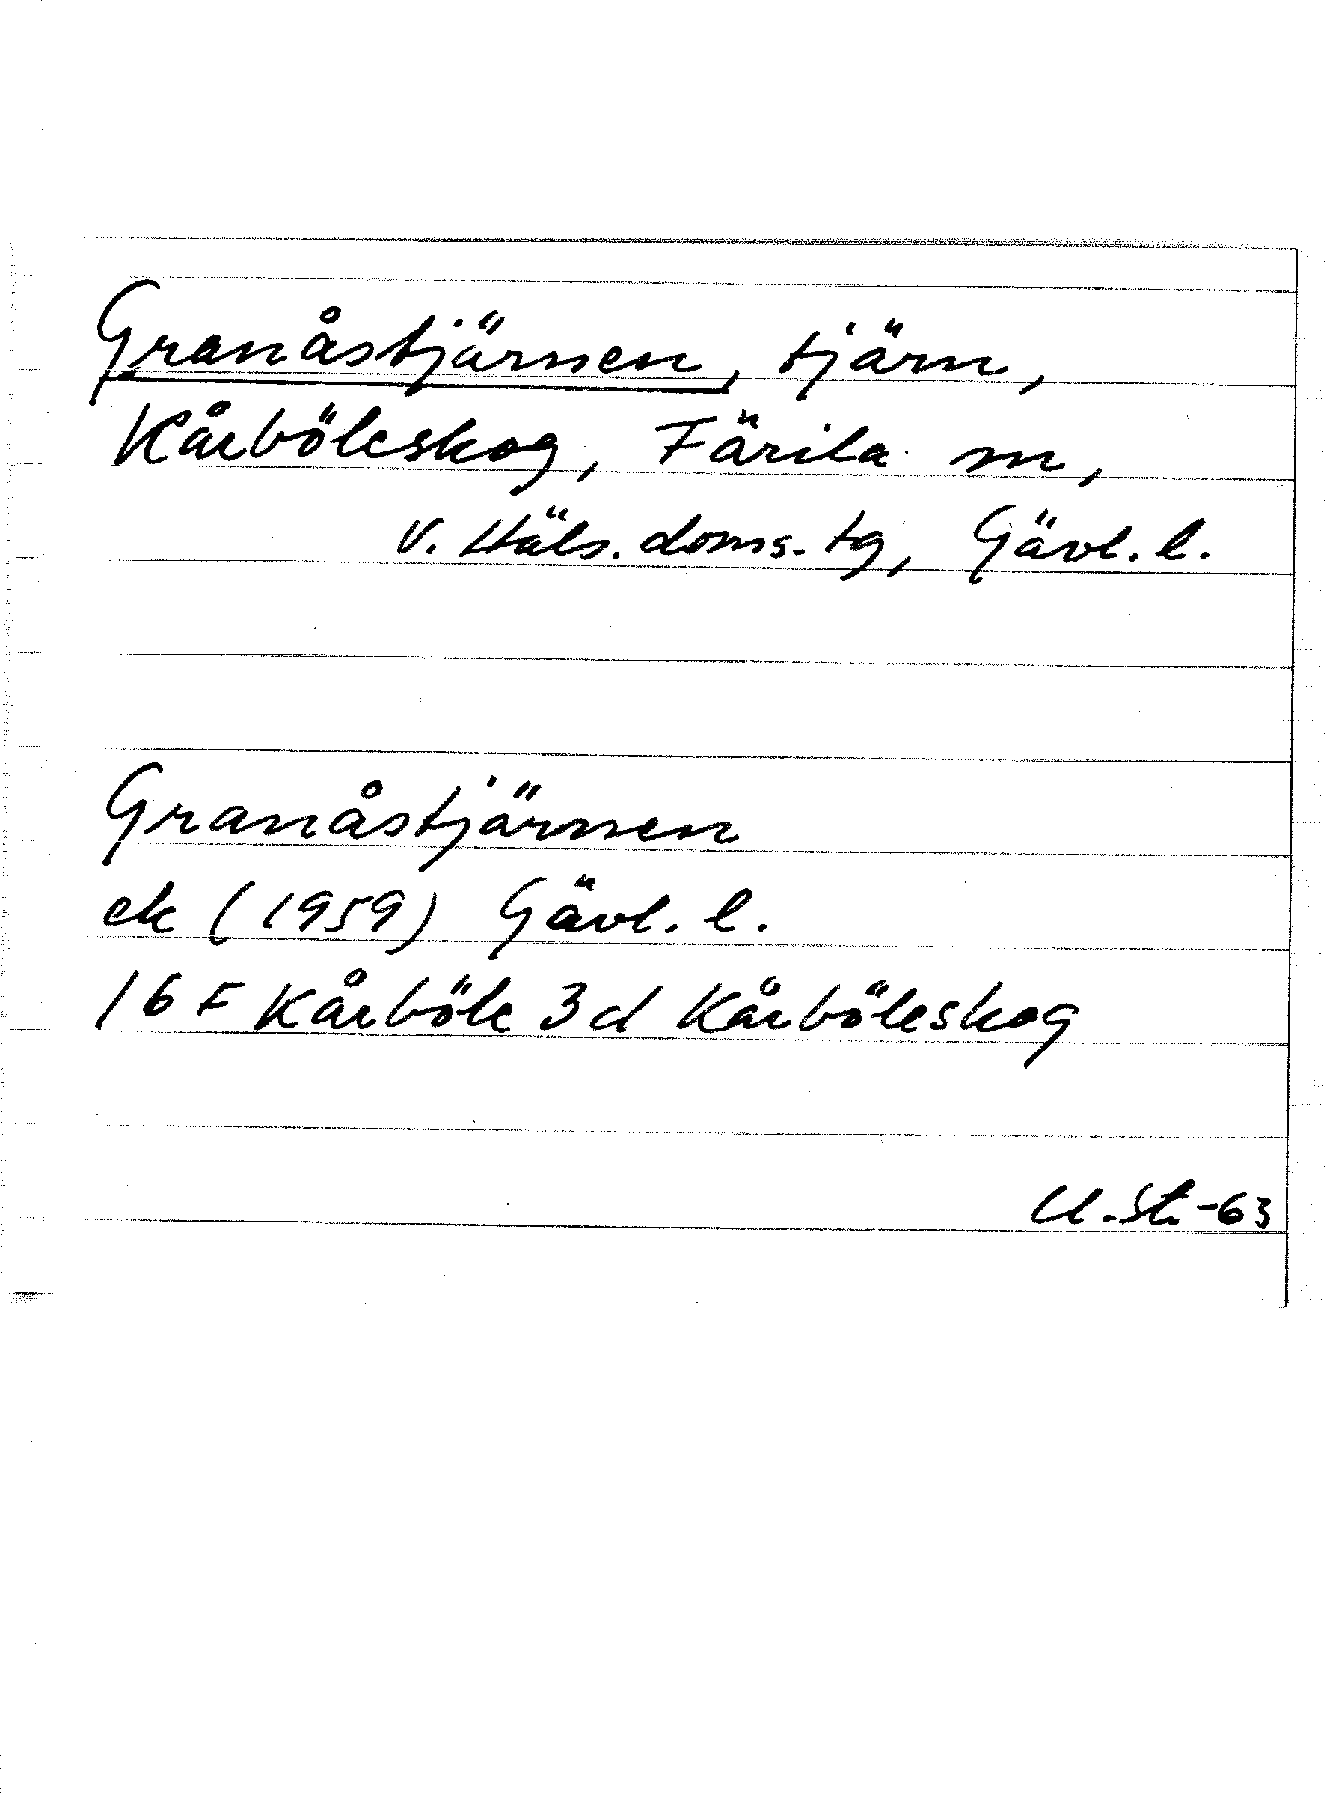 Granåstjärnen, tjärn,
Kårböleskog, Färila m,
v. Häls. doms. tg, Gävl. l.
Granåstjärnen
ek (1959) Gävl. l.
16 F Kårböle 3d Kårböleskog
U. St. -63